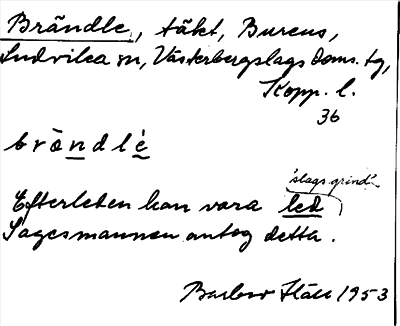 Brändle, täkt, Burens,
Ludvika sn, Västerbergslags doms. tg,
Kopp. l.
36
brändlè
'slags grind'
Efterleden kan vara led
Sagesmannen antog detta.
1953